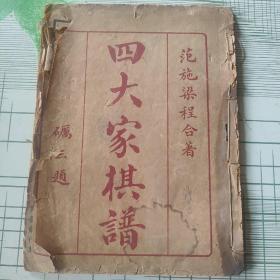 范施梁程合著
四大家棋譜
礪三題